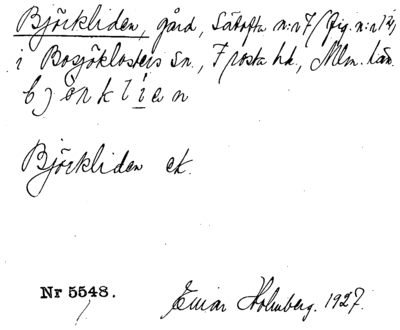 Björkliden, gård, Sätofta n:r 7
i Bosjöklosters sn., Frosta hd., Mlm. län.
bjö̀rklìan
Björkliden ek.
Nr 5548. Einar Holmberg. 1927.